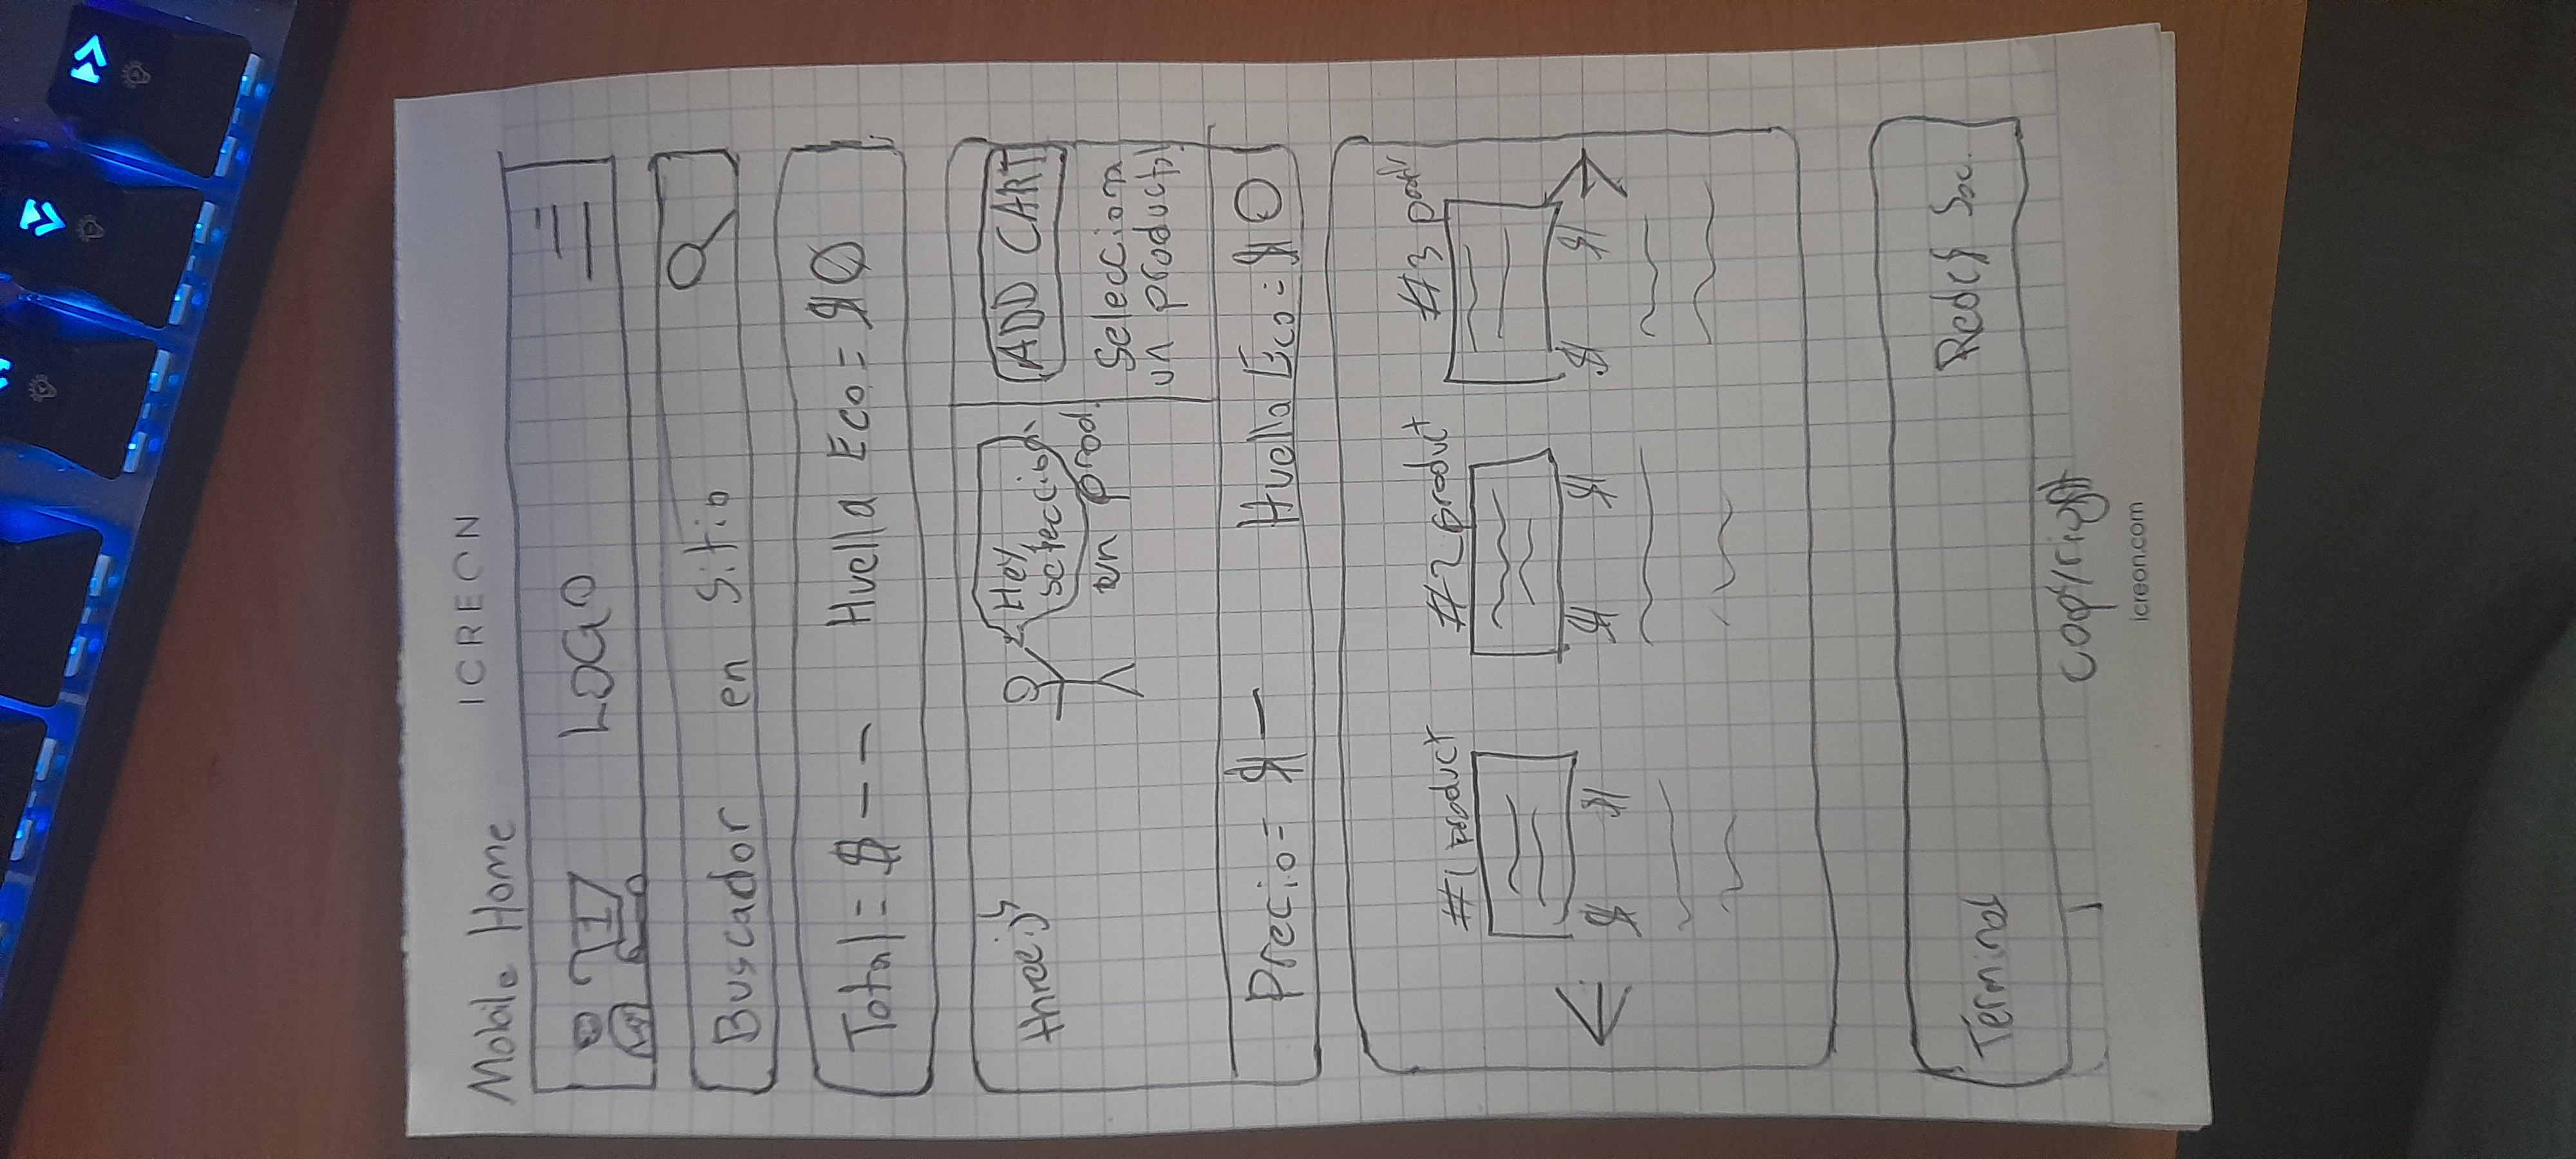 ICREON
Mobile Home
1 LOGO
Buscador en Sitio
Total = $ -- Huella Eco = $ 0
three.js
Hey,
seleccion
un prod.
ADD CART
Selecciona
un producto!
Precio = $ - Huella Eco = $ 0
#1 product #2 product #3
$ $ $ $ $ $
Terminos Redes Soc.
copyright
icreon.com